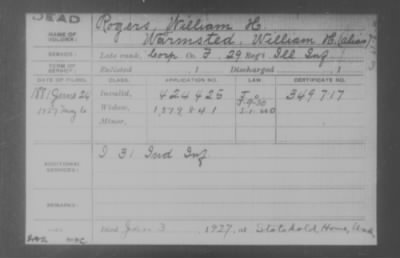 DEAD
NAME OF SOLDIER: Rogers, William H.
Warmsted, William H. (alias)
SERVICE: Late rank, Corp Co. F, 29 Reg't Ill Inf
TERM OF SERVICE: Enlisted , 1 Discharged , 1
DATE OF FILING. CLASS. APPLICATION NO. LAW. CERTIFICATE NO.
1881 June 24 Invalid, 424425 349717
1927 Widow, 1579841
Minor,
ADDITIONAL SERVICES: I 31 Ind Inf
REMARKS:
Died 3, 1927, at Home,